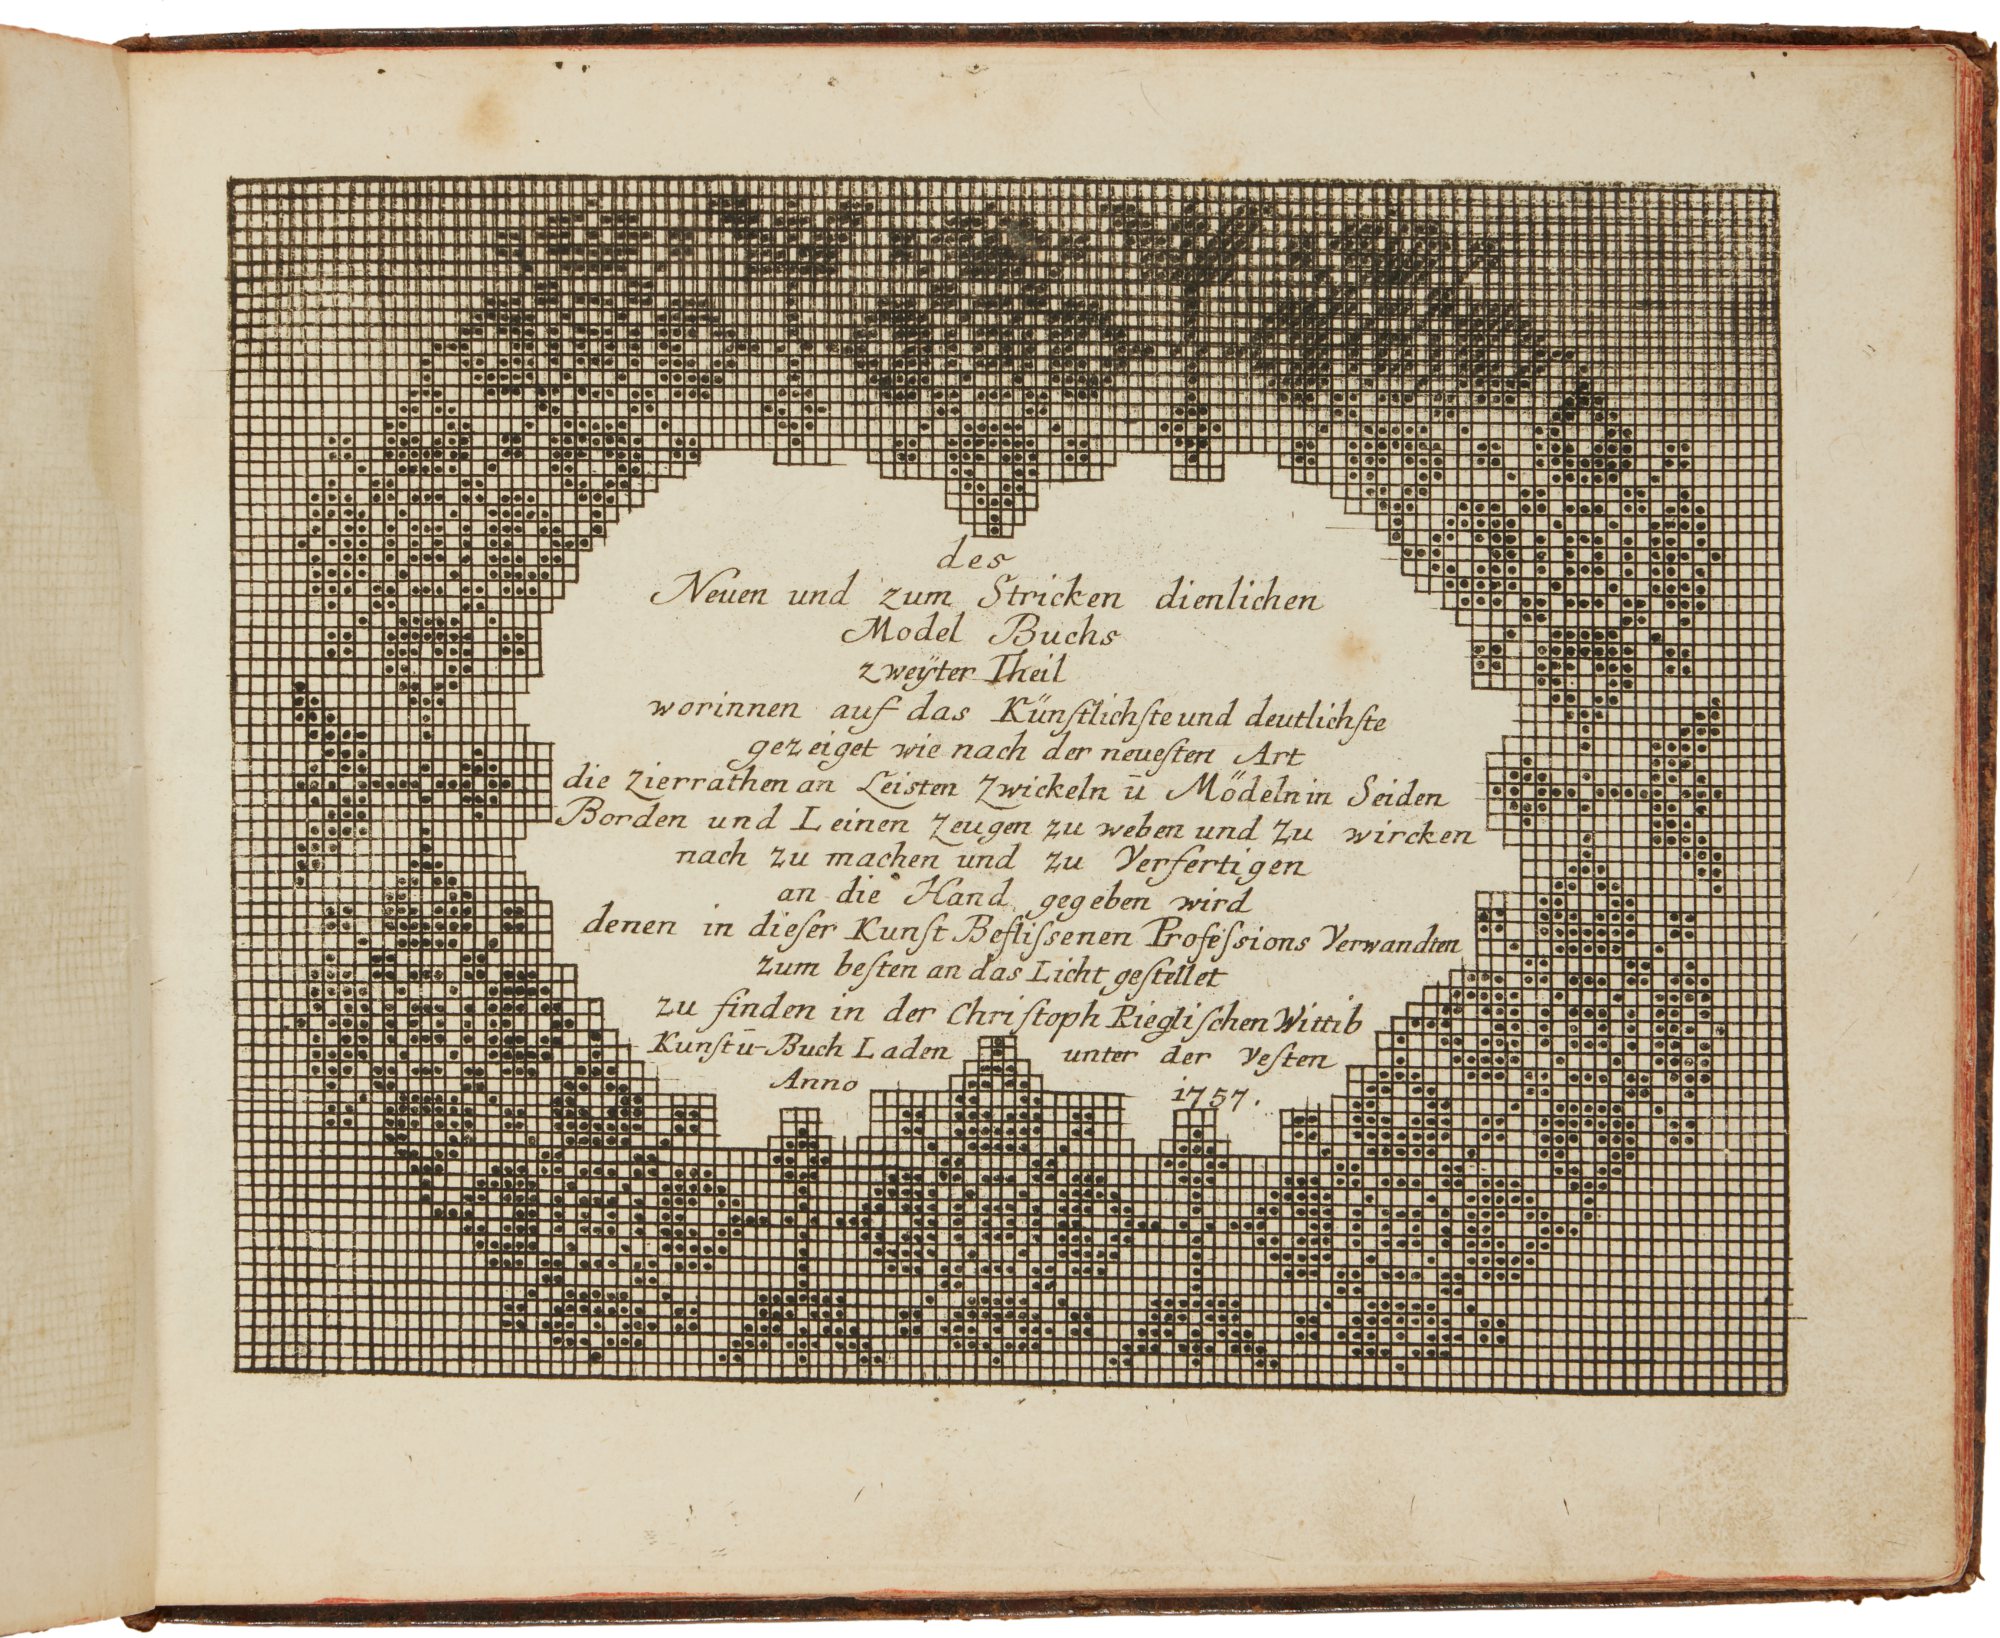 des
Neuen und zum Stricken dienlichen
Model Buchs
zweÿter Theil
worinnen auf das Künſtlichſte und deutlichſte
gezeiget wie nach der neueſten Art
die Zierrathen an Leisten Zwickeln ū Mödeln in Seiden
Borden und Leinen Zeugen zu weben und Zu wircken
nach zu machen und zu Verfertigen
an die Hand gegeben wird
denen in dieſer Kunſt Befliſsenen Profeſsions Verwandten
zum beſten an das Licht geſtellet
zu finden in der Chriſtoph Riegliſchen Wittib
Kunſt ū-Buch Laden unter der Veſten
Anno 1757.